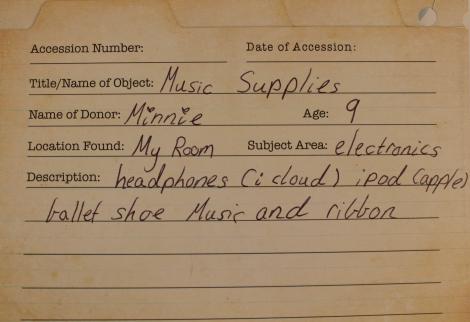 Accession Number: Date of Accession:
Title/Name of Object: Music Supplies
Name of Donor: Minnie Age: 9
Location Found: My Room Subject Area: electronics
Description: headphones (i cloud) ipod (apple)
ballet shoe Music and ribbon